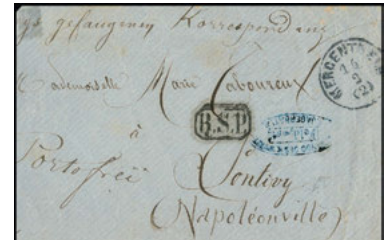 gefangenen Korrespondenz
Mademoiselle Marie Laboureux
R.S.P
à
Portofreï Pontivy
(Napoléonville)